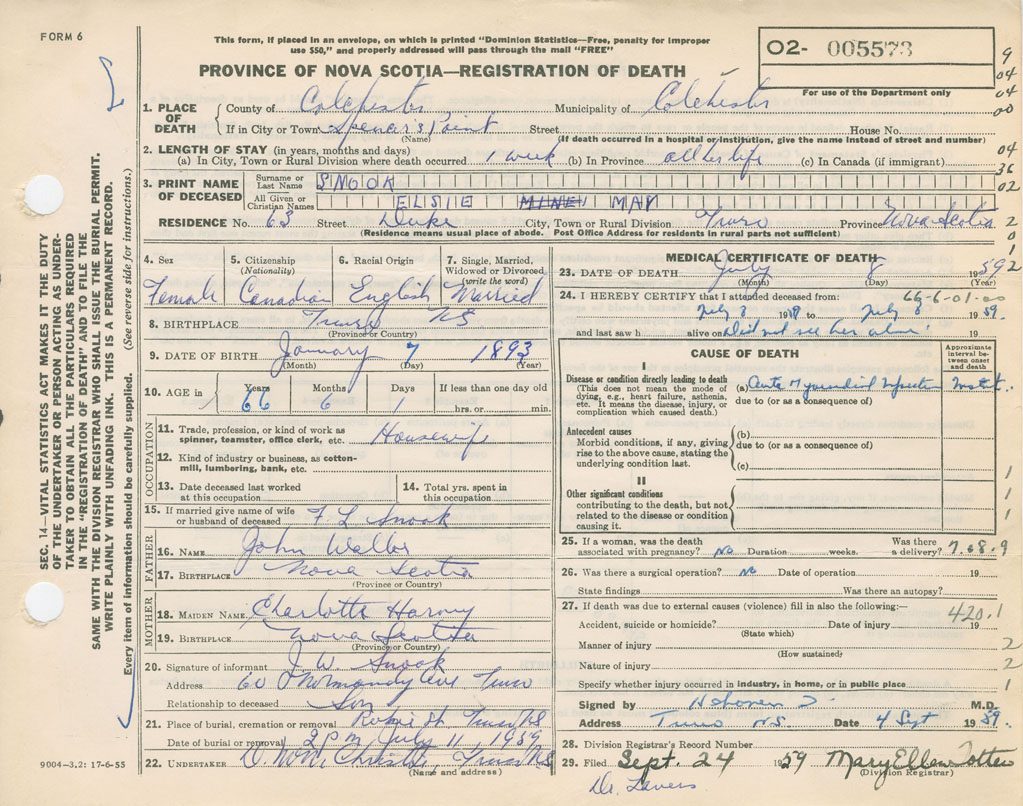 FORM 6
This form, if placed in an envelope, on which is printed "Dominion Statistics—Free, penalty for improper
use $50," and properly addressed will pass through the mail "FREE"
O2- 005573
For use of the Department only
PROVINCE OF NOVA SCOTIA—REGISTRATION OF DEATH
9
04
04
00
04
36
02
2
0
1
2
1. PLACE OF DEATH County of Colchester Municipality of Colchester
If in City or Town Spencer's Point Street House No.
(Name) (If death occurred in a hospital or institution, give the name instead of street and number)
2. LENGTH OF STAY (in years, months and days)
(a) In City, Town or Rural Division where death occurred 1 week (b) In Province all her life (c) In Canada (if immigrant)
3. PRINT NAME OF DECEASED Surname or Last Name SNOOK
All Given or Christian Names ELSIE MAY
RESIDENCE No. 63 Street Duke City, Town or Rural Division Truro Province Nova Scotia
(Residence means usual place of abode. Post Office Address for residents in rural parts not sufficient)
4. Sex
Female
5. Citizenship
(Nationality)
Canadian
6. Racial Origin
English
7. Single, Married,
Widowed or Divorced
(write the word)
Married
8. BIRTHPLACE Truro NS
(Province or Country)
9. DATE OF BIRTH January 7 1893
(Month) (Day) (Year)
10. AGE in Years Months Days If less than one day old
66 6 1 hrs. or min.
OCCUPATION
11. Trade, profession, or kind of work as
spinner, teamster, office clerk, etc. Housewife
12. Kind of industry or business, as cotton-
mill, lumbering, bank, etc.
13. Date deceased last worked
at this occupation
14. Total yrs. spent in
this occupation
15. If married give name of wife
or husband of deceased F. L. Snook
FATHER
16. NAME John
17. BIRTHPLACE Nova Scotia
(Province or Country)
MOTHER
18. MAIDEN NAME Charlotte
19. BIRTHPLACE Nova Scotia
(Province or Country)
20. Signature of informant J. W. Snook
Address 60 Normandy Ave Truro
Relationship to deceased Son
21. Place of burial, cremation or removal Robie St. Truro NS
Date of burial or removal 2 PM July 11 1959
22. UNDERTAKER Truro N.S.
(Name and address)
9004—3.2: 17-6-55
MEDICAL CERTIFICATE OF DEATH
23. DATE OF DEATH July 8 1959
(Month) (Day) (Year)
24. I HEREBY CERTIFY that I attended deceased from: 66-6-01-00
July 8 19 to July 8 1959.
and last saw h alive on Did not see her alive. 19
CAUSE OF DEATH
Approximate
interval be-
tween onset
and death
I
Disease or condition directly leading to death
(This does not mean the mode of
dying, e.g., heart failure, asthenia,
etc. It means the disease, injury, or
complication which caused death.)
(a) Acute Myocardial Infarction
due to (or as a consequence of)
Antecedent causes
Morbid conditions, if any, giving
rise to the above cause, stating the
underlying condition last.
(b)
due to (or as a consequence of)
(c)
II
Other significant conditions
contributing to the death, but not
related to the disease or condition
causing it.
1
1
25. If a woman, was the death
associated with pregnancy? No Duration weeks. Was there
a delivery? 7.08.9
26. Was there a surgical operation? No Date of operation 19
State findings Was there an autopsy?
27. If death was due to external causes (violence) fill in also the following:—
420.1
Accident, suicide or homicide? Date of injury 19
(State which)
Manner of injury 2
(How sustained)
Nature of injury 2
Specify whether injury occurred in industry, in home, or in public place 1
Signed by M.D.
Address Truro N.S. Date 4 Sept 1959.
28. Division Registrar's Record Number
29. Filed Sept. 24 1959 Mary Ellen Totten
(Division Registrar)
Dr. Lavers
SEC. 14—VITAL STATISTICS ACT MAKES IT THE DUTY
OF THE UNDERTAKER OR PERSON ACTING AS UNDER-
TAKER TO OBTAIN ALL THE PARTICULARS REQUIRED
IN THE "REGISTRATION OF DEATH" AND TO FILE THE
SAME WITH THE DIVISION REGISTRAR WHO SHALL ISSUE THE BURIAL PERMIT.
WRITE PLAINLY WITH UNFADING INK. THIS IS A PERMANENT RECORD.
Every item of information should be carefully supplied. (See reverse side for instructions.)